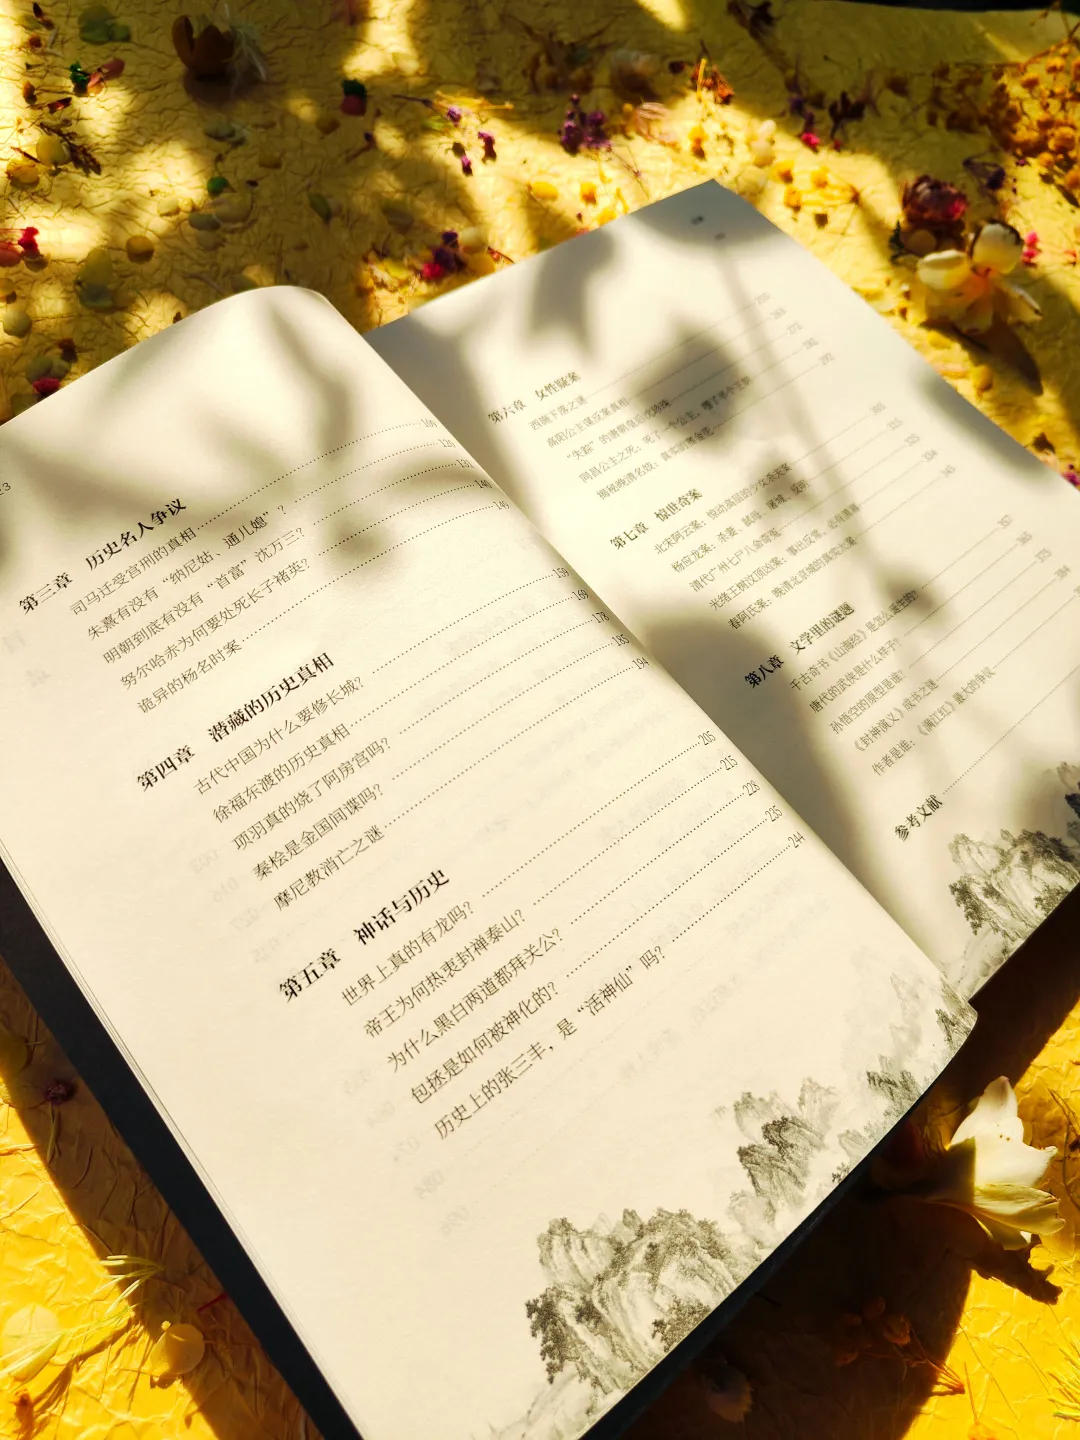 第三章 历史名人争议
司马迁受宫刑的真相
朱熹有没有“纳尼姑、通儿媳”? 120
明朝到底有没有“首富”沈万三? 131
努尔哈赤为何要处死长子褚英? 140
诡异的杨名时案 149
第四章 潜藏的历史真相
古代中国为什么要修长城? 159
徐福东渡的历史真相 169
项羽真的烧了阿房宫吗? 178
秦桧是金国间谍吗? 185
摩尼教消亡之谜 194
第五章 神话与历史
世界上真的有龙吗? 205
帝王为何热衷封禅泰山? 215
为什么黑白两道都拜关公? 228
包拯是如何被神化的? 235
历史上的张三丰，是“活神仙”吗? 244
第六章 女性疑案
西施下落之谜
高阳公主谋反案真相
“失踪”的唐朝皇后沈珍珠
同昌公主之死：死了一个公主，
揭秘晚清名妓：真实的赛金花
第七章 惊世奇案
北宋阿云案：惊动高层的少女杀夫案
杨应龙案：杀妻、弑母、屠城、反明
清代广州七尸八命奇冤
光绪王树汶顶凶案：事出反常，必有猫腻
春阿氏案：晚清北京城的真实大案
第八章 文学里的谜题
千古奇书《山海经》是怎么诞生的?
唐代的武侠是什么样子?
孙悟空的原型是谁?
《封神演义》成书之谜
作者是谁：《满江红》最大的争议
参考文献